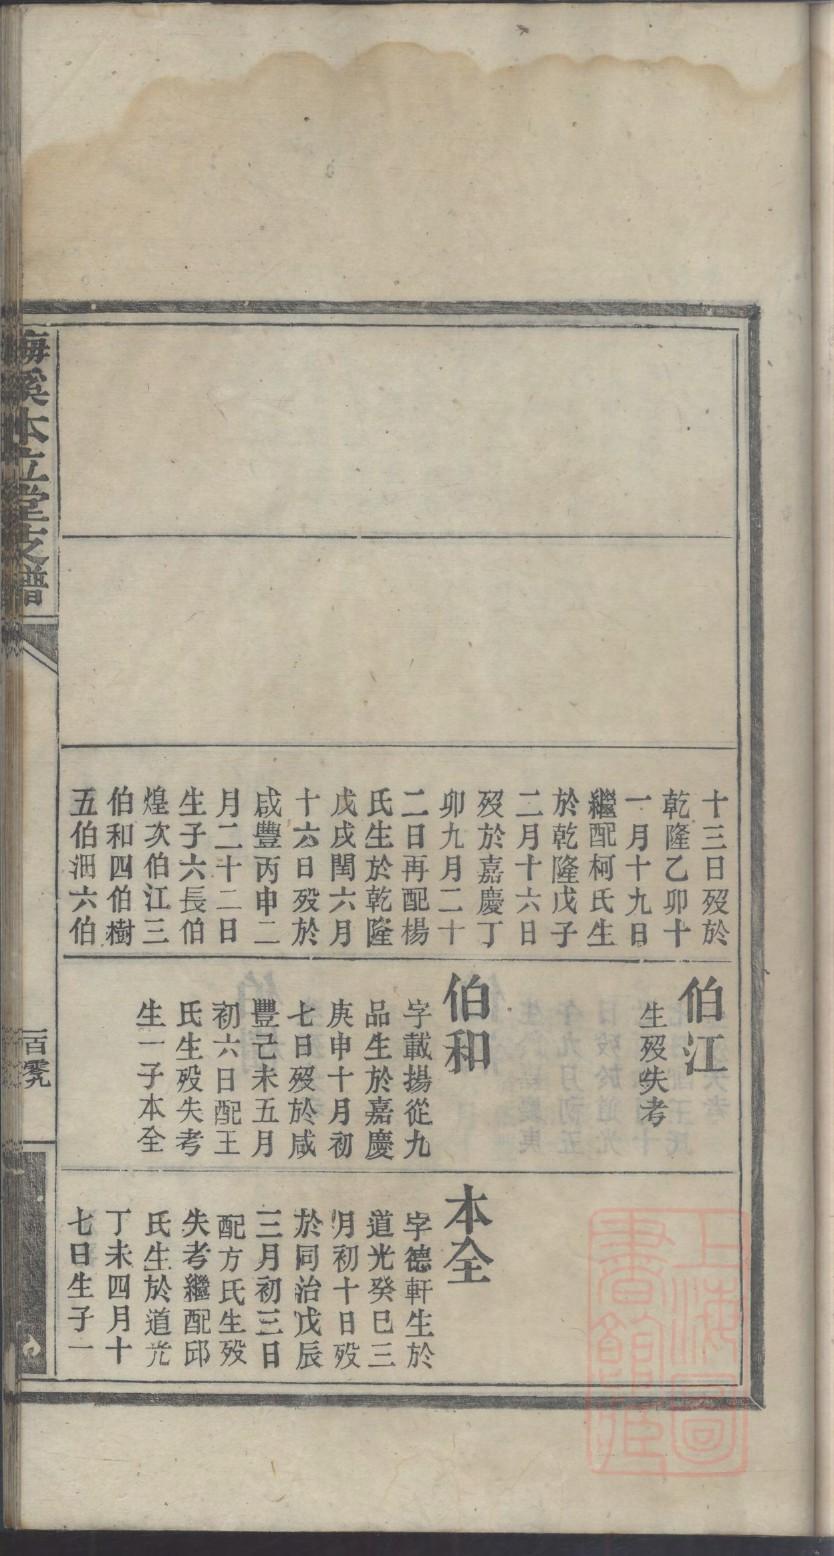 十三日歿於
乾隆乙卯十
一月十九日
繼配柯氏生
於乾隆戊子
二月十六日
歿於嘉慶丁
卯九月二十
二日再配楊
氏生於乾隆
戊戌閏六月
十六日歿於
咸豐丙申二
月二十二日
生子六長伯
煌次伯江三
伯和四伯樹
五伯沺六伯
伯江
生歿失考
伯和
字載揚從九
品生於嘉慶
庚申十月初
七日歿於咸
豐己未五月
初六日配王
氏生殁失考
生一子本全
本全
字德軒生於
道光癸巳三
月初十日歿
於同治戊辰
三月初三日
配方氏生歿
失考繼配邱
氏生於道光
丁未四月十
七日生子一
梅溪本立堂支譜
一百零九
上海圖書館藏